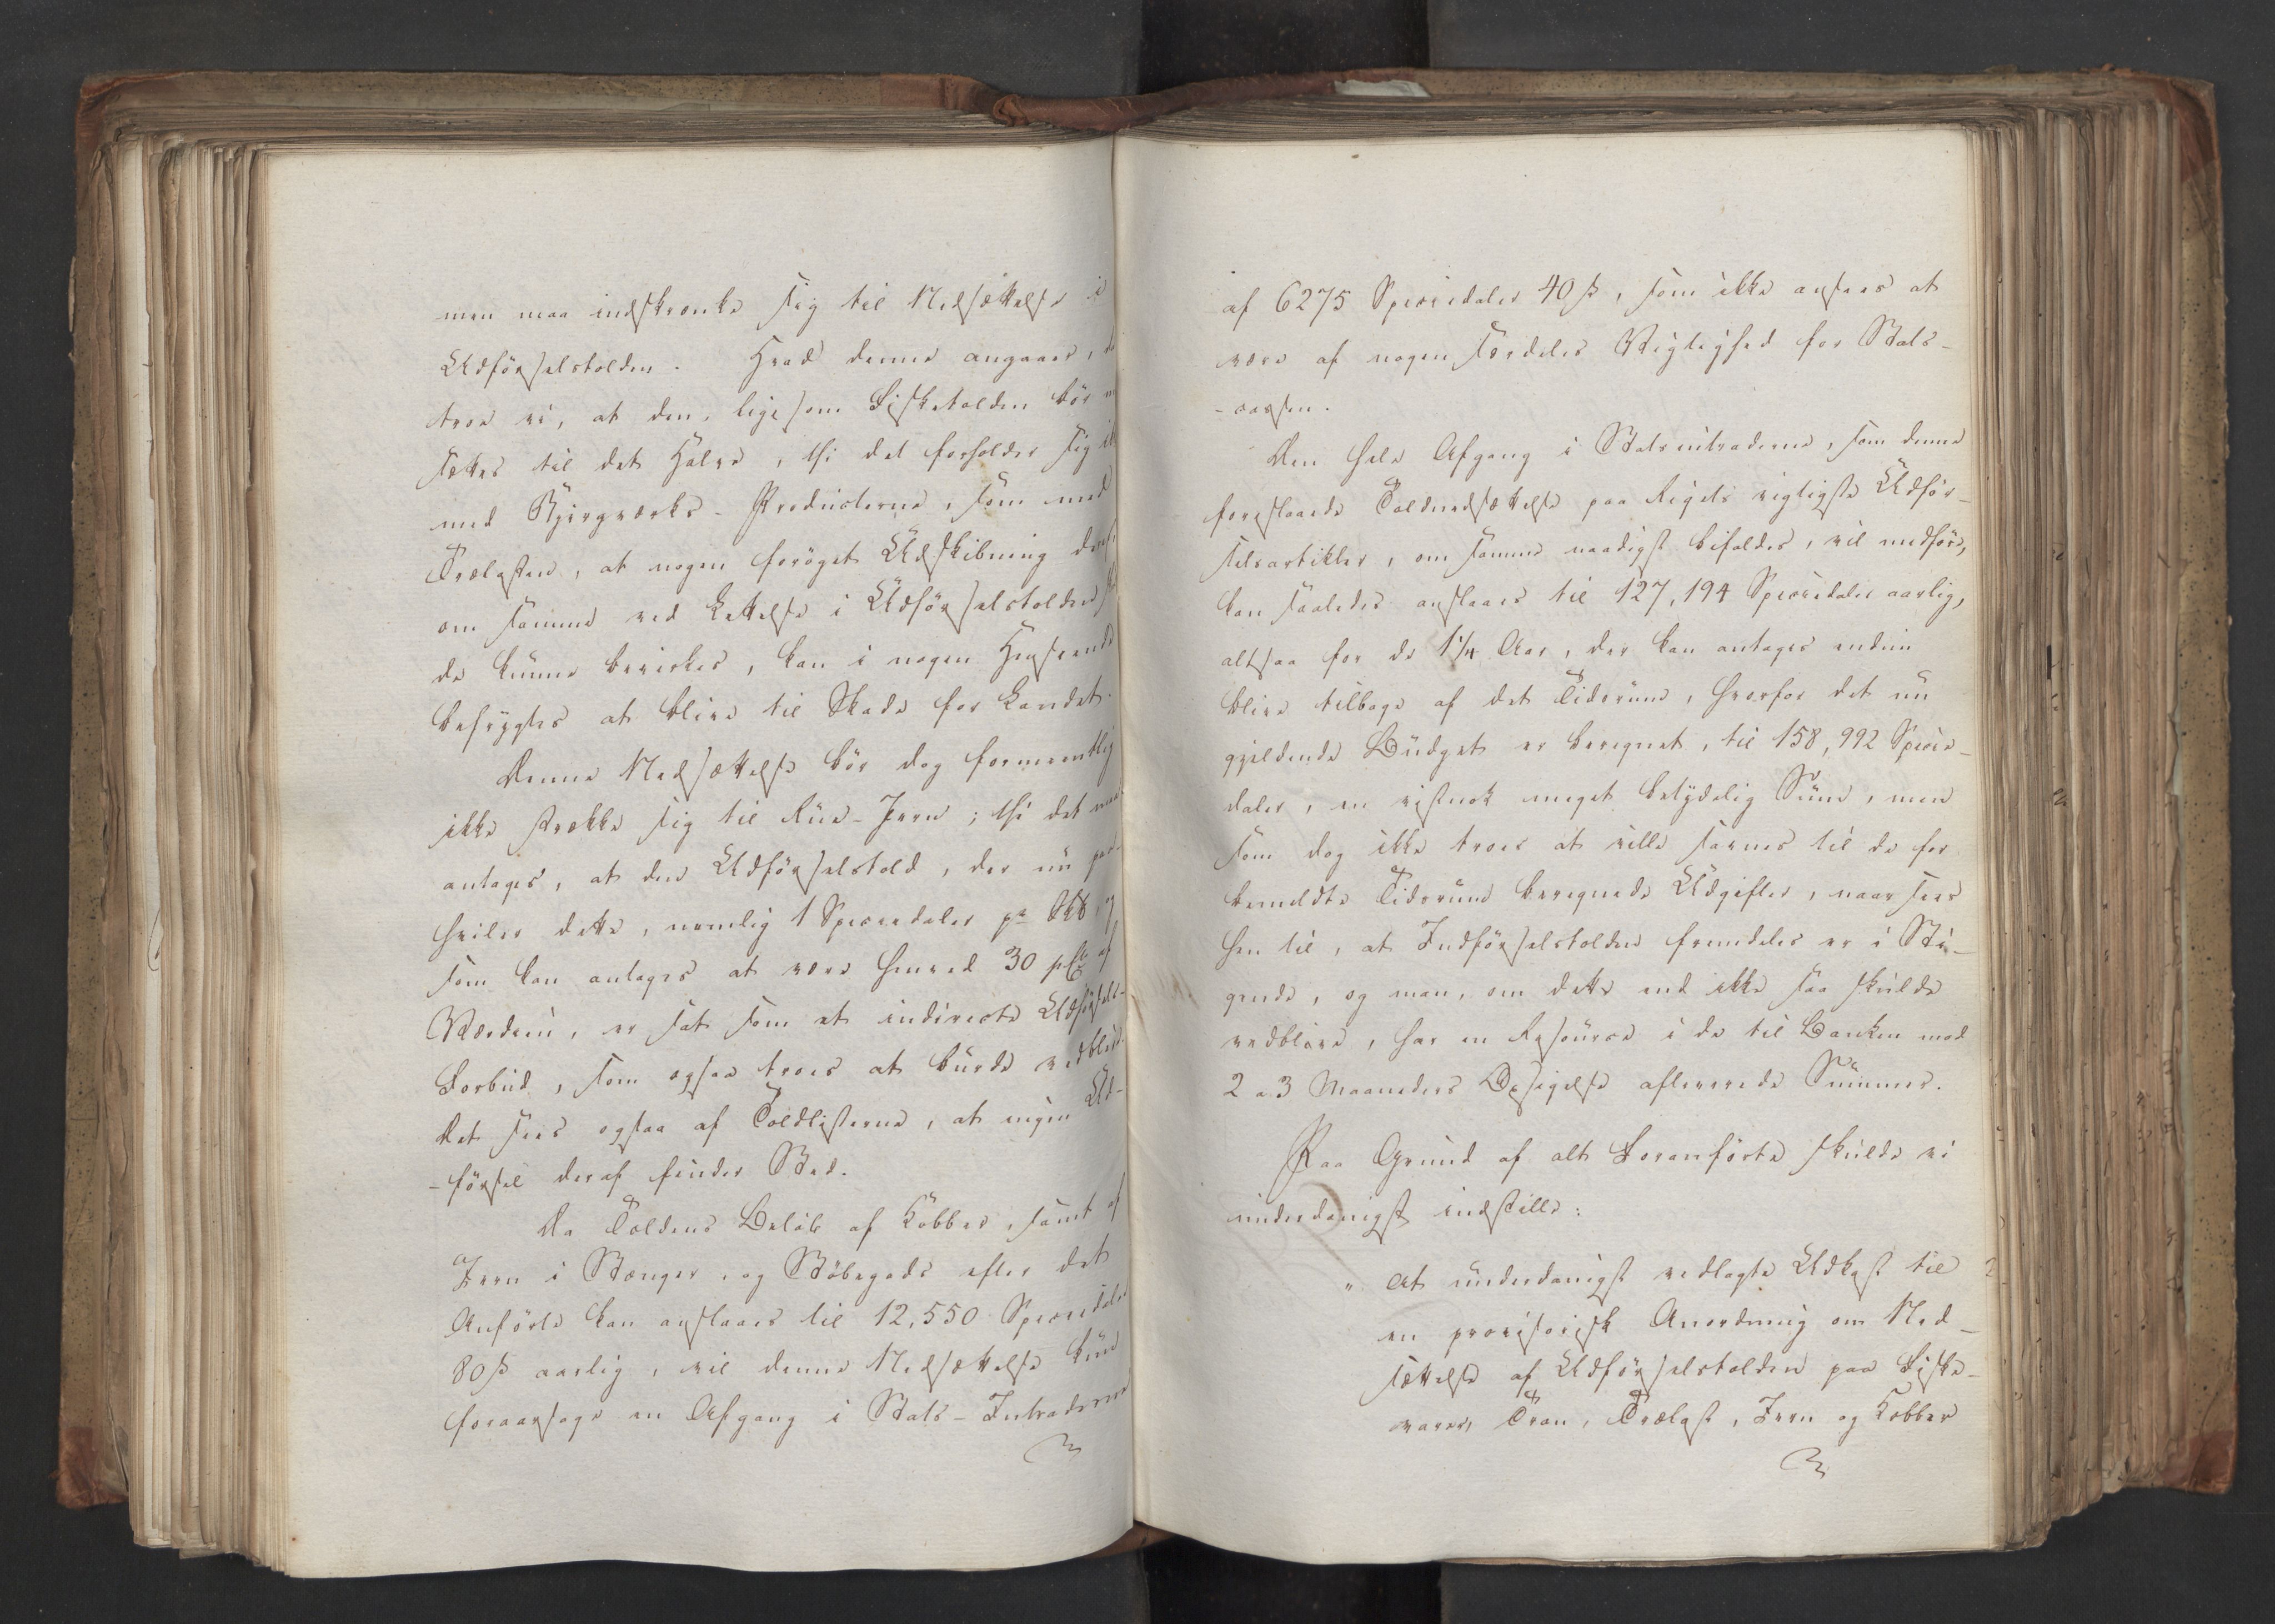 men maa indskrænke sig til Nedsættelse i
Udförselstolden. Hvad denne angaaer,
troe vi, at den, ligesom Fisketolden bör
sættes til det Halve, thi det forholder sig
med Bjergværks-Producterne, som med
Trælasten, at nogen foröget Udskibning deraf,
om samme ved Lettelse i Udförselstolden
de kunne bevirkes, kan i nogen Henseende
befrygtes at blive til Skade for Landet.
Denne Nedsættelse bör dog formeentlig
ikke strække sig til Rue-Jern; thi det maa
antages, at den Udförselstold, der nu paa-
hviler dette, nemlig 1 Speciedaler pr Skb,
som kan antages at være henved 30 pCt af
Værdien, er sat som et indirecte Udförsels-
Forbud, som ogsaa troes at burde vedblive.
Det sees ogsaa af Toldlisterne, at ingen Ud-
-försel deraf finder Sted.
Da Toldens Belöb af Kobber, samt af
Jern i Stænger, og Stöbegods efter det
Anförte kan anslaaes til 12,550 Speciedaler
80 ß aarlig, vil denne Nedsættelse kun
foraarsage en Afgang i Stats-Intraderne
af 6275 Speciedaler 40 ß, som ikke ansees at
være af nogen særdeles Vigtighed for Stats-
-cassen.
Den hele Afgang i Statsintraderne, som denne
foreslaaede Toldnedsættelse paa Rigets vigtigste Udför-
selsartikler, om samme naadigst bifaldes, vil medföre,
kan saaledes anslaaes til 127,194 Speciedaler aarlig,
altsaa for de 1 1/4 Aar, der kan antages endnu
blive tilbage af det Tidsrum, hvorfor det nu
gjeldende Budget er beregnet, til 158,992 Specie-
daler, en vistnok meget betydelig Sum, men
som dog ikke troes at ville savnes til de for
bemeldte Tidsrum beregnede Udgifter, naar sees
hen til, at Indförselstolden fremdeles er i Sti-
gende, og man, om dette end ikke saa skulde
vedblive, har en Resource i de til Banken mod
2 a 3 Maaneders Opsigelse afleverede Summer.
Paa Grund af alt Foranförte skulde vi
underdanigst indstille:
" At underdanigst vedlagte Udkast til
en provisorisk Anordning om Ned-
sættelse af Udförselstolden paa Fiske-
varer, Tran, Trælast, Jern og Kobber